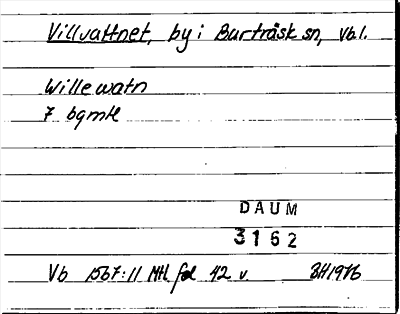 Villvattnet, by i Burträsk sn, Vbl.
Willewatn
7 bgmtl
DAUM
3162
Vb 1567:11 Mtl fol 42 v. BH1976